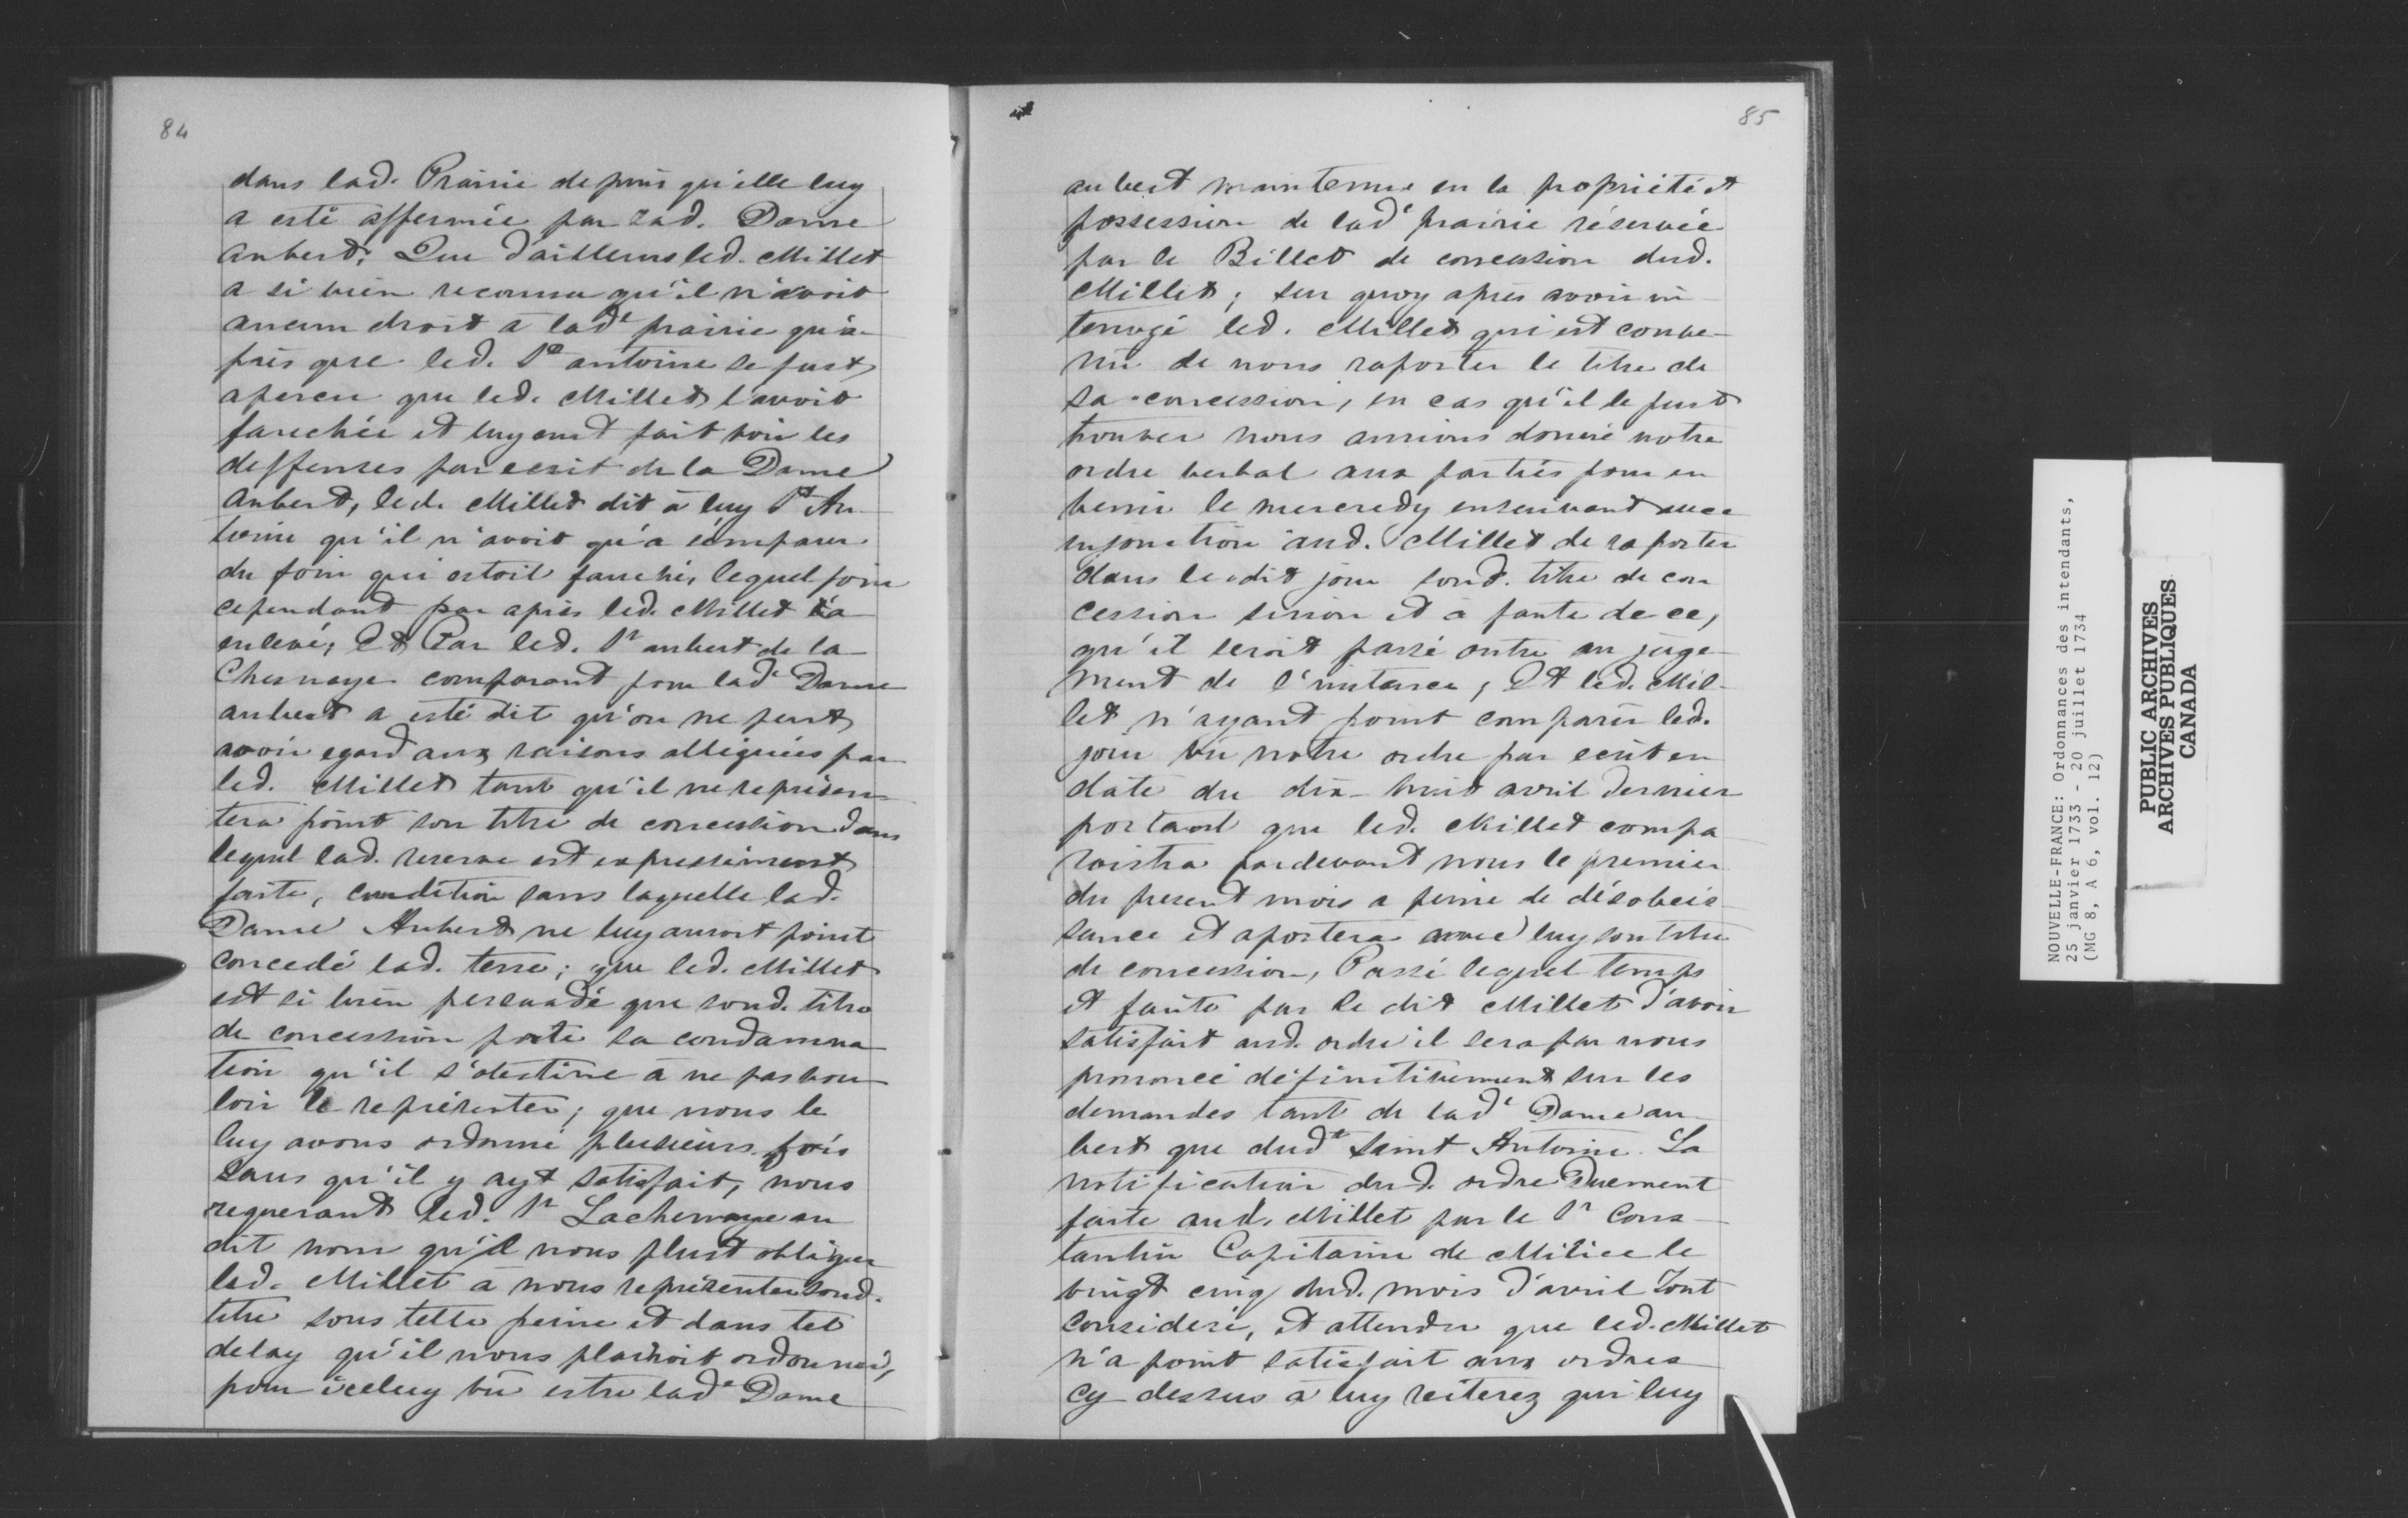 84
dans lad. Prairie depuis qu'elle luy
a esté affermée par lad. Dame
aubert; Que d'ailleurs led. Millet
a si bien reconnu qu'il n'avoit
aucun droit a lade prairie qu'a-
prés que led. St antoine se fust
aperceu que led. Millet l'avoit
fauchée et luy eust fait voir les
deffenses par ecrit de la Dame
aubert, led. Millet dit à luy St An-
toine qu'il n'avoit qu'à s'emparer
du foin qui estoit fauché, lequel foin
cependant par après led. Millet l'a
enlevé; Et Par led. Sr aubert de la
Chesnaye comparant pour lade Dame
aubert a esté dit qu'on ne peut
avoir egard aux raisons alleguées par
led. Millet tant qu'il ne represen-
tera point son titre de concession dans
lequel lad. reserve est expressément
faite, condition sans laquelle lad.
Dame Aubert ne luy auroit point
concedé lad. terre; que led. Millet
est si bien persuadé que sond. titre
de concession porte sa condamna
tion qu'il s'obstine à ne pas vou-
loir le représenter; que nous le
luy avons ordonné plusieurs fois
sans qu'il y ayt satisfait, nous
requerant led. Sr Lachenaye au
dit nom qu'il nous plust obliger
led. Millet à nous représenter sond.
titre sous telle peine et dans tel
delay qu'il nous plairoit ordonner,
pour iceluy vû estre lade Dame
85
aubert maintenue en la propriété et
possession de lade prairie réservée
par le Billet de concession dud.
Millet; sur quoy après avoir in
terrogé led. Millet qui est conve-
nu de nous raporter le titre de
sa concession, en cas qu'il le pust
trouver nous aurions donné notre
ordre verbal aux parties pour en
venir le mercredy ensuivant avec
injonction aud. Millet de raporter
dans ledit jour sond. titre de con
cession sinon et à faute de ce,
qu'il seroit passé outre au juge-
ment de l'instance; Et led. Mil-
let n'ayant point comparu led.
jour vu notre ordre par ecrit en
date du dix-huit avril dernier
portant que led. Millet compa
roistra pardevant nous le premier
du present mois a peine de désobeis-
sance et aportera avec luy son titre
de concession, Passé lequel temps
et faute par le dit Millet d'avoir
satisfait aud. ordre il sera par nous
prononcé définitivement sur les
demandes tant de lade Dame au-
bert que dudt Saint Antoine. La
notification dud. ordre Duement
faite aud. Millet par le Sr Cons-
tantin Capitaine de Milice le
vingt cinq dud. mois d'avril Tout
Consideré, et attendu que led. Millet
n'a point satisfait aux ordres
cy dessus à luy reiterez qui luy
NOUVELLE-FRANCE: Ordonnances des intendants,
25 janvier 1733 - 20 juillet 1734
(MG 8, A 6, vol. 12)
PUBLIC ARCHIVES
ARCHIVES PUBLIQUES
CANADA